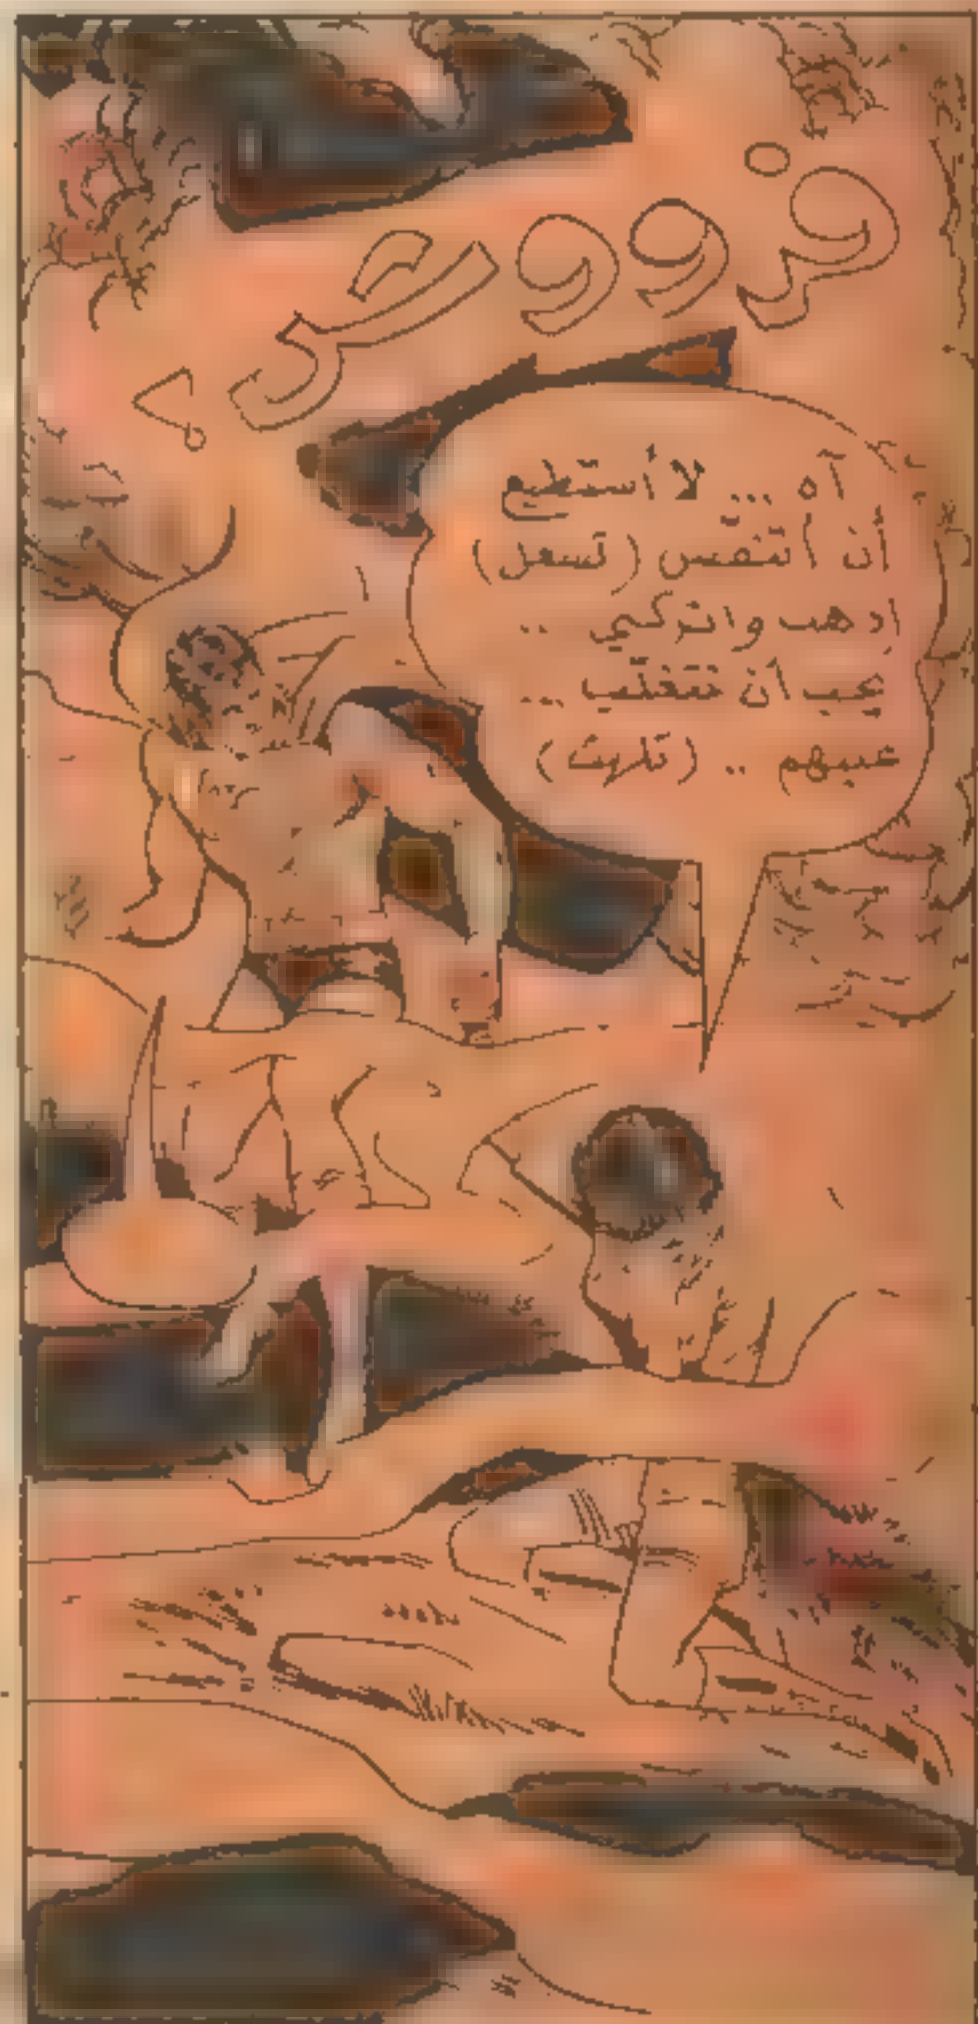 فووووش !
آه ... لا أستطيع
أن أتنفّس (تسعل)
اذهب واتركني ..
يجب أن تتغلّب ...
عليهم .. (تلهث)